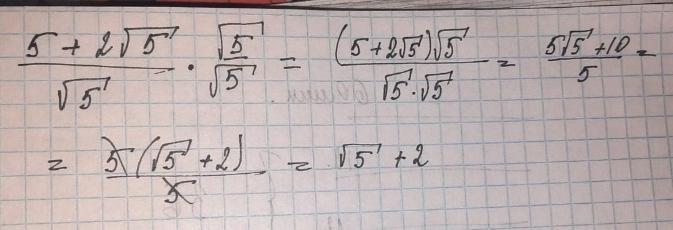 (5 + 2√5)/√5 · √5/√5 = ((5 + 2√5)√5)/(√5 · √5) = (5√5 + 10)/5 =
= (5(√5 + 2))/5 = √5 + 2